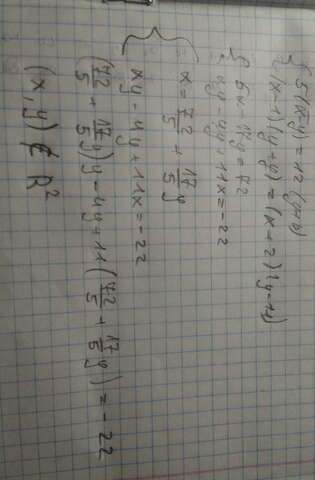 5(x-y) = 12(y+6)
(x-1)(y+4) = (x+2)(y-11)
5x-17y=72
xy-4y+11x=-22
x = 72/5 + 17/5 y
xy-4y+11x=-22
(72/5 + 17/5 y)y-4y+11(72/5 + 17/5 y) = -22
(x,y) ∉ R²